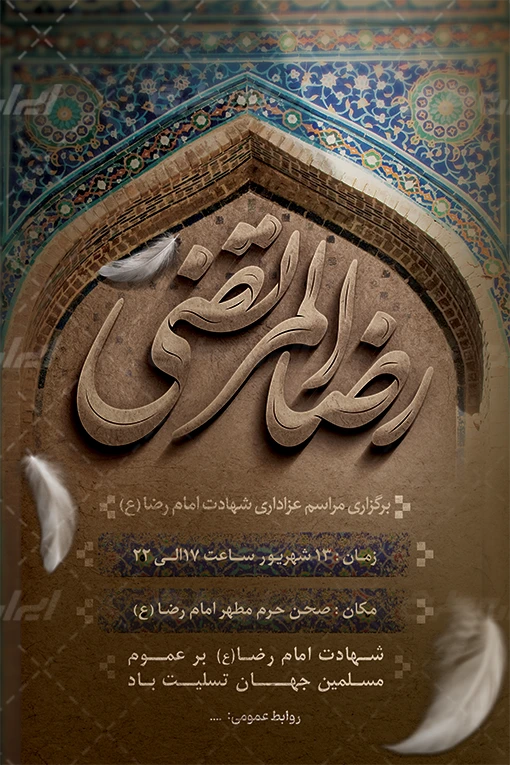 رضا المرتضی
برگزاری مراسم عزاداری شهادت امام رضا (ع)
زمان : ۱۳ شهریور ساعت ۱۷ الی ۲۲
مکان : صحن حرم مطهر امام رضا (ع)
شهادت امام رضا(ع) بر عموم
مسلمین جهان تسلیت باد
روابط عمومی: ....